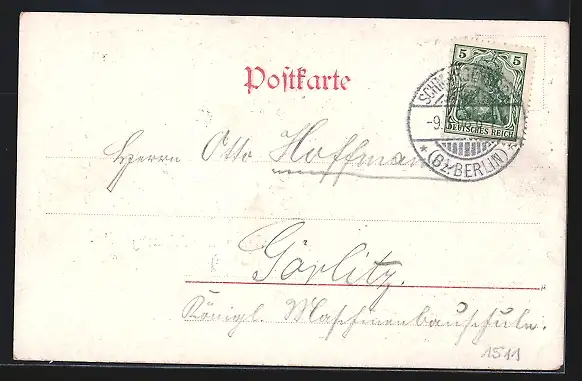 5 5
DEUTSCHES REICH
-9.
* (Bz. BERLIN) *
Postkarte
Herrn Otto Hoffmann
Görlitz.
Königl. Maschinenbauschule.
1511